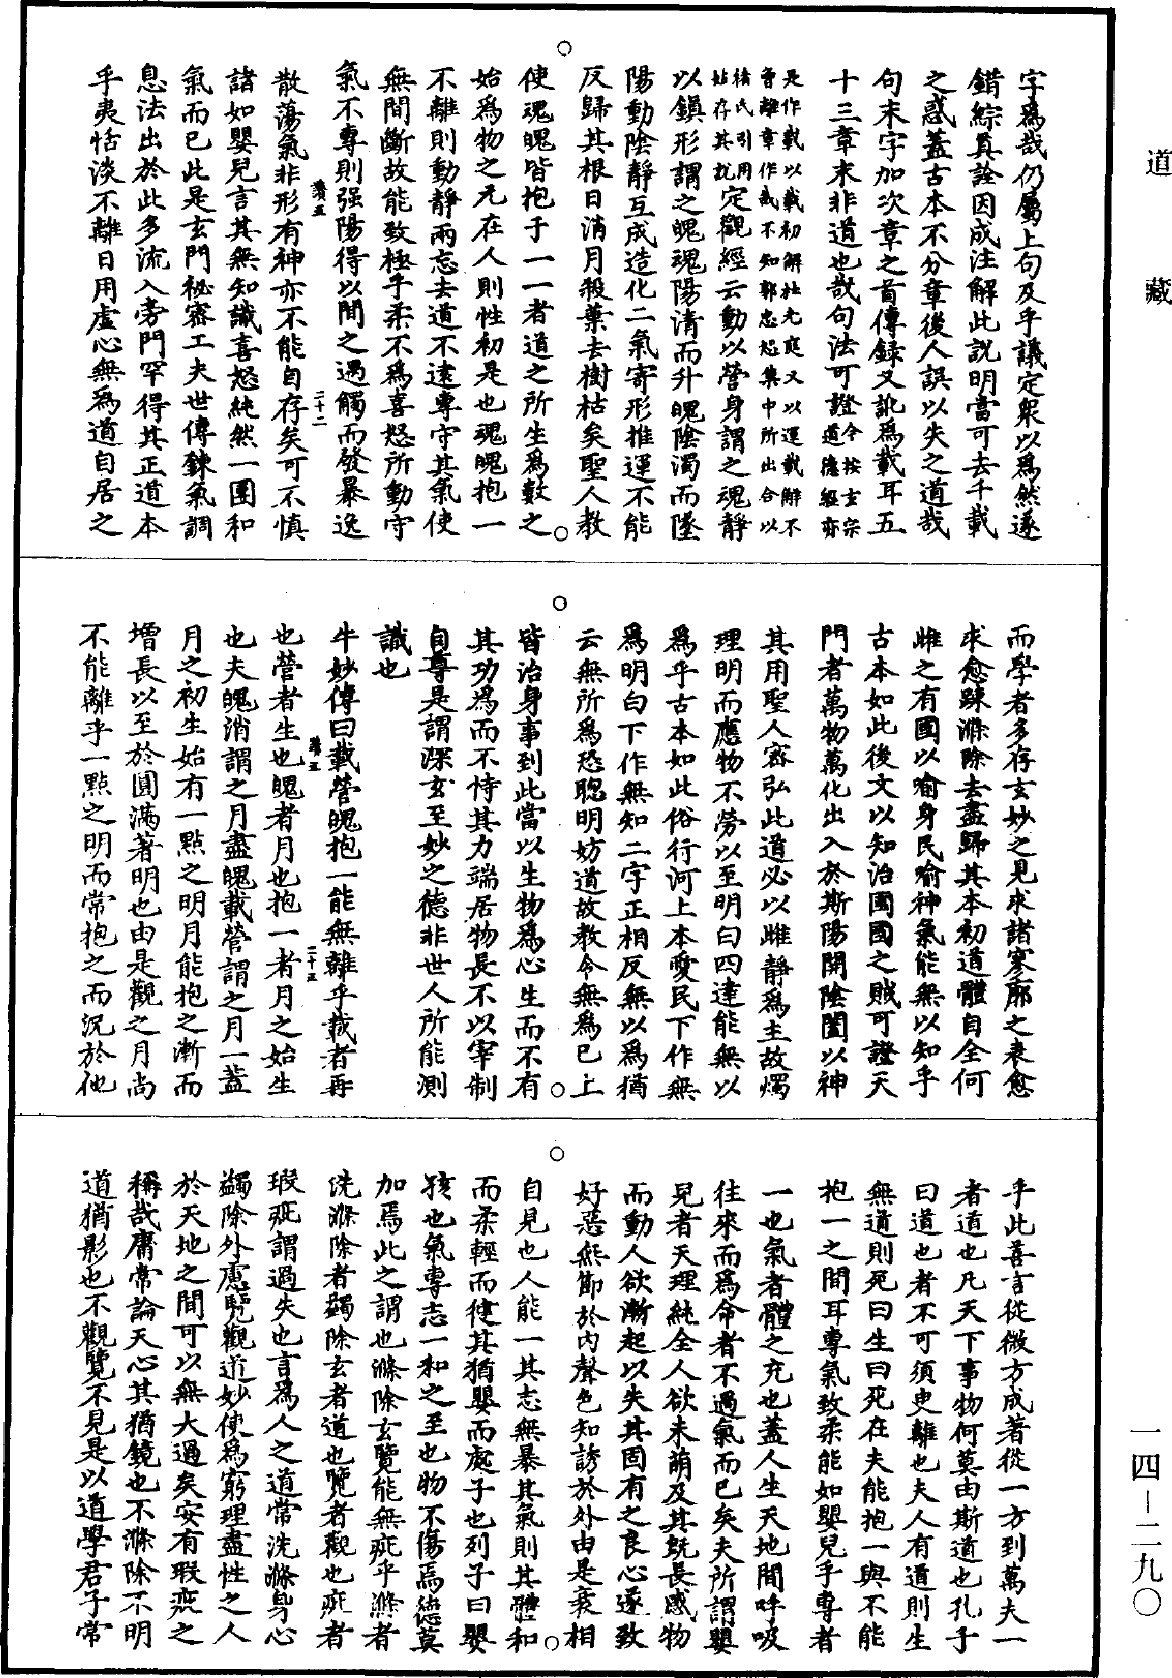 道藏
字爲哉仍屬上句及乎議定衆以爲然遂
錯綜真詮因成注解此說明當可去千載
之惑蓋古本不分章後人誤以失之道哉
句末字加次章之首傳録又訛爲載耳五
十三章末非道也哉句法可證今按玄宗道德經亦
是作載以載初解杜光庭又以運載解不
會離章作哉不知郭忠恕集中所出合以
猪氏引用
姑存其說定觀經云動以營身謂之魂靜
以鎮形謂之魄魂陽清而升魄陰濁而墜
陽動陰靜互成造化二氣寄形推運不能
反歸其根日消月殺葉去樹枯矣聖人教
使魂魄皆抱于一一者道之所生爲數之
始爲物之元在人則性初是也魂魄抱一
不離則動靜兩忘去道不遠專守其氣使
無間斷故能致極乎柔不爲喜怒所動守
氣不專則强陽得以間之遇觸而發暴逸
讚五 二十二
散蕩氣非形有神亦不能自存矣可不慎
諸如嬰兒言其無知識喜怒純然一團和
氣而已此是玄門秘密工夫世傳鍊氣調
息法出於此多流入旁門罕得其正道本
乎夷恬淡不離日用虛心無爲道自居之
而學者多存玄妙之見求諸寥廓之表愈
求愈踈滌除去盡歸其本初道體自全何
雌之有國以喻身民喻神氣能無以知乎
古本如此後文以知治國國之賊可證天
門者萬物萬化出入於斯陽開陰闔以神
其用聖人密弘此道必以雌靜爲主故燭
理明而應物不勞以至明白四達能無以
爲乎古本如此俗行河上本愛民下作無
爲明白下作無知二字正相反無以爲猶
云無所爲恐聰明妨道故教令無爲已上
皆治身事到此當以生物爲心生而不有
其功爲而不恃其力端居物長不以宰制
自尊是謂深玄至妙之德非世人所能測
識也
牛妙傳曰載營魄抱一能無離乎載者再
讚五 二十三
也營者生也魄者月也抱一者月之始生
也夫魄消謂之月盡魄載營謂之月一蓋
月之初生始有一點之明月能抱之漸而
增長以至於圓滿著明也由是觀之月尚
不能離乎一點之明而常抱之而況於他
乎此善言從微方成著從一方到萬夫一
者道也凡天下事物何莫由斯道也孔子
曰道也者不可須臾離也夫人有道則生
無道則死曰生曰死在夫能抱一與不能
抱一之間耳專氣致柔能如嬰兒乎專者
一也氣者體之充也蓋人生天地間呼吸
往來而爲命者不過氣而已矣夫所謂嬰
兒者天理純全人欲未萌及其既長感物
而動人欲漸起以失其固有之良心遂致
好惡無節於內聲色知誘於外由是衰相
自見也人能一其志無暴其氣則其體和
而柔輕而健其猶嬰而處子也列子曰嬰
孩也氣專志一和之至也物不傷焉德莫
加焉此之謂也滌除玄覽能無疵乎滌者
洗滌除者蠲除玄者道也覽者觀也疵者
瑕疵謂過失也言爲人之道常洗滌身心
蠲除外慮覽觀道妙使爲窮理盡性之人
於天地之間可以無大過矣安有瑕疵之
稱哉庸常論天心其猶鏡也不滌除不明
道猶影也不觀覽不見是以道學君子常
一四—二九〇